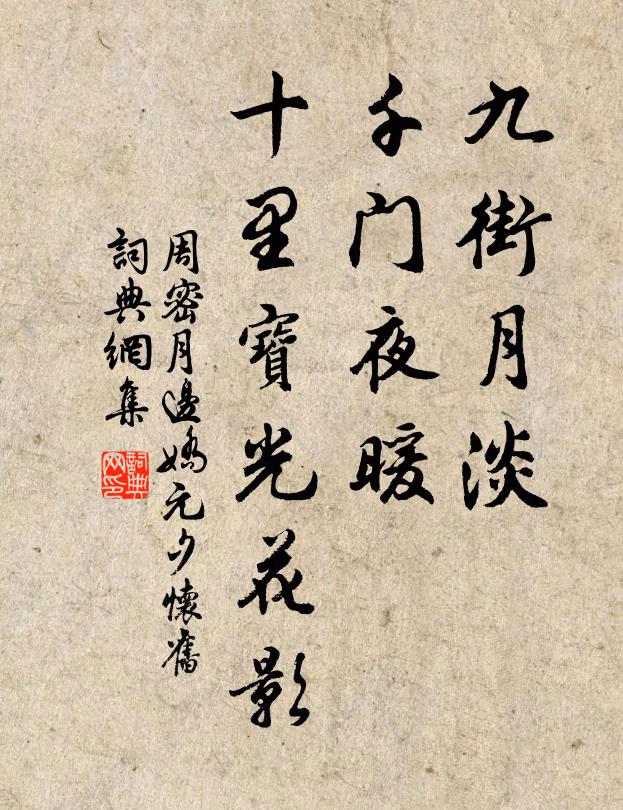 九街月淡
千门夜暖
十里寶光花影
周密月邊嬌元夕懷舊
詞典網集
詞典网印